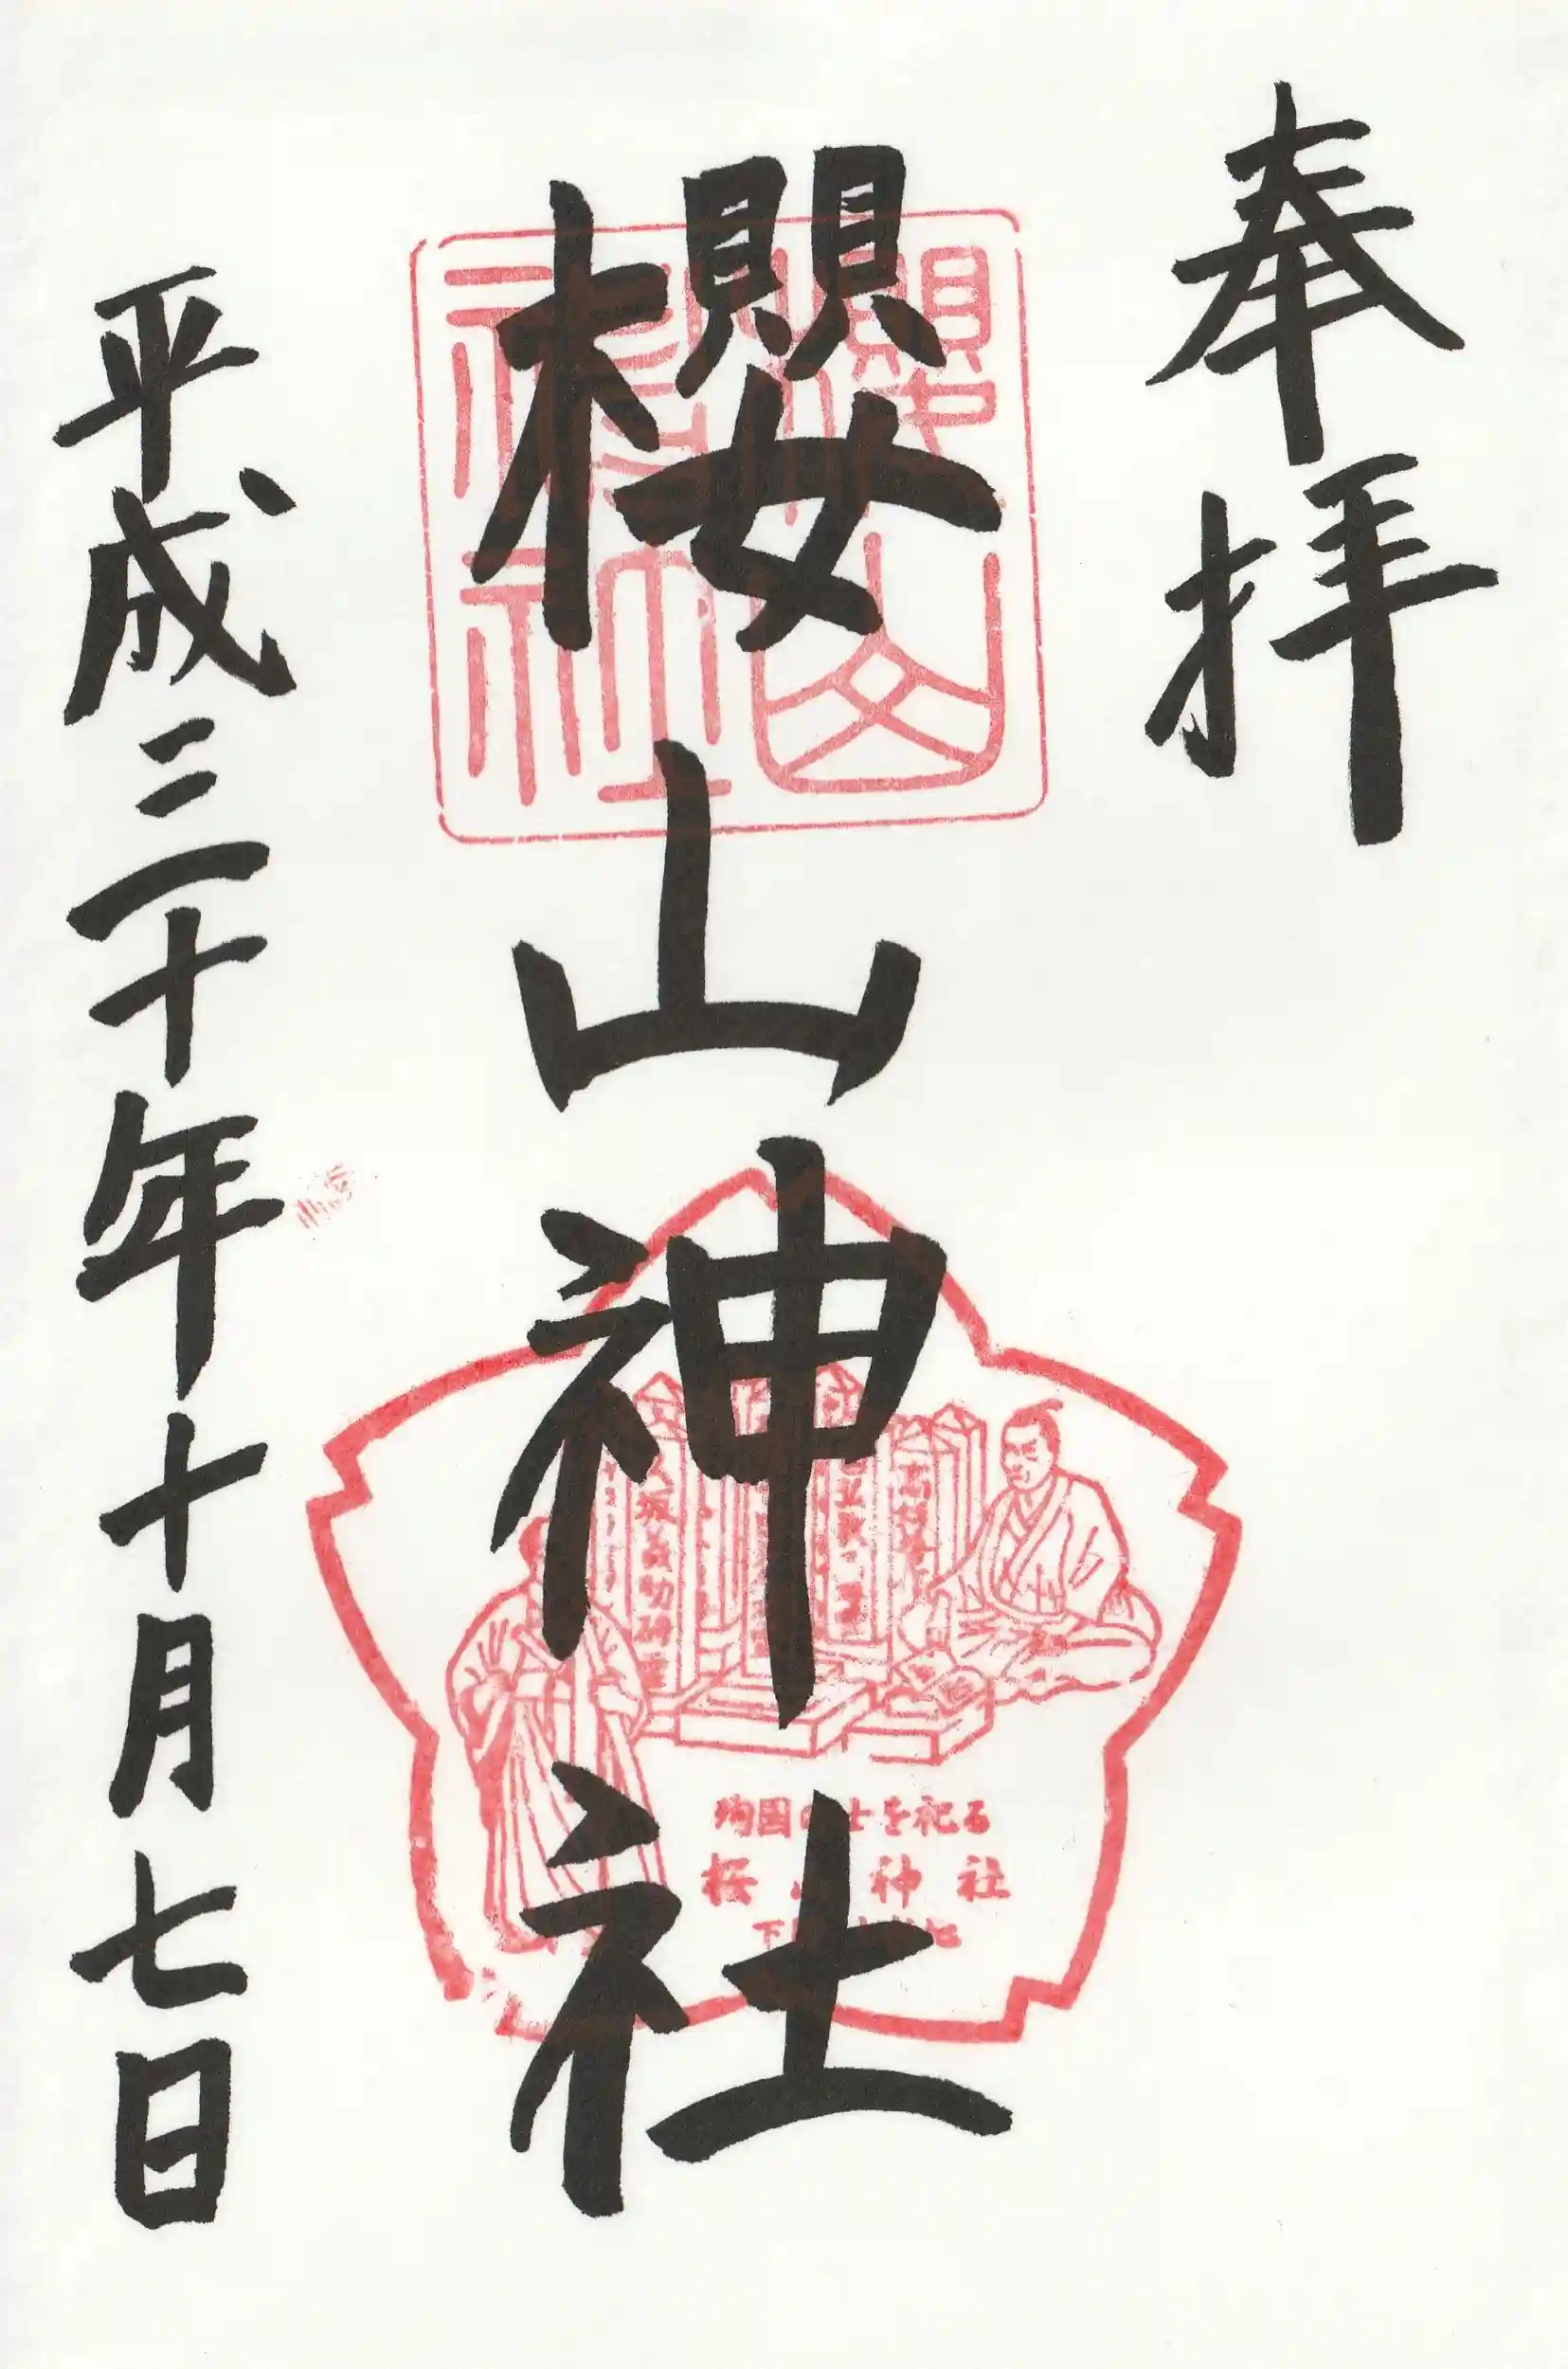 奉拝
櫻山神社
平成三十年十月七日
櫻山
神社
殉国の士を祀る
桜山神社